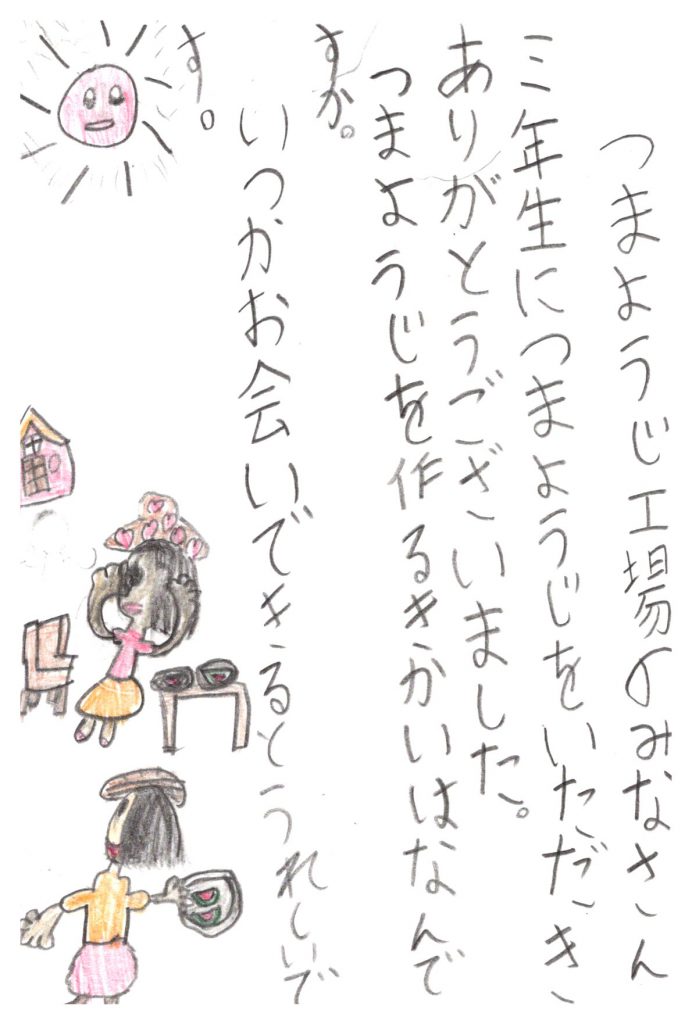 つまようじ工場のみなさん
三年生につまようじをいただき
ありがとうございました。
つまようじを作るきかいはなんで
すか。
いつかお会いできるとうれしいで
す。